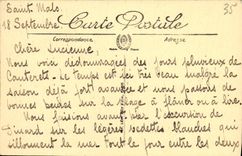 Saint Malo
18 Septembre
35
Carte Postale
Correspondance
Adresse
Chère Lucienne.
Nous voici dédommagées des jours pluvieux de
Cauterets. Le temps est fort très beau malgré la
saison déjà fort avancée et nous passons de
bonnes heures sur la plage à flâner ou à lire.
Nous faisons avant par-ci l'excursion de
Dinard sur les légères vedettes blanches qui
sillonnent la mer tout le jour entre les deux